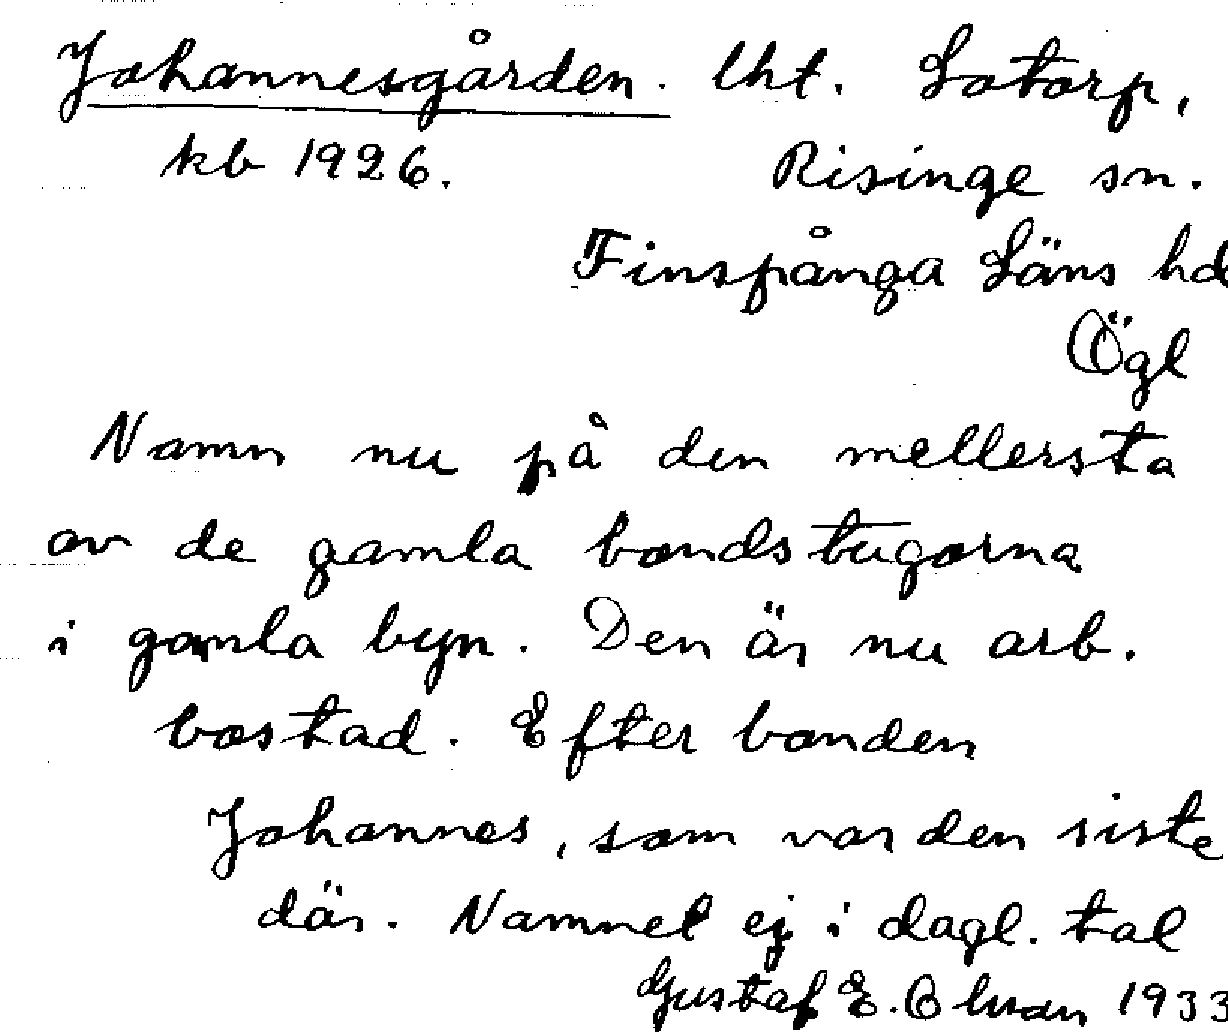 Johannesgården. lht. Lotorp,
kb 1926. Risinge sn.
Finspånga Läns hd
Ögl
Namn nu på den mellersta
av de gamla bondstugorna
i gamla byn. Den är nu arb.
bostad. Efter bonden
Johannes, som var den siste
där. Namnet ej i dagl. tal
Gustaf E. 1933